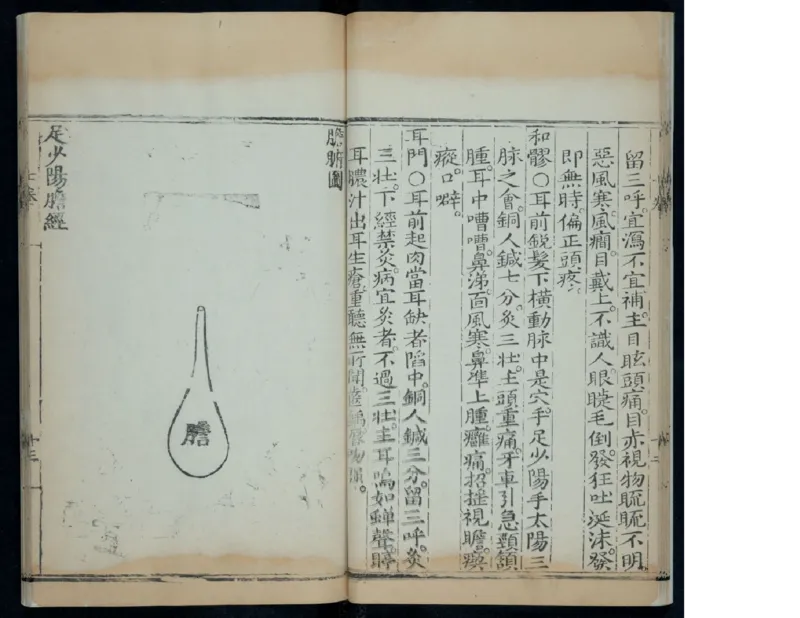 留三呼宜瀉不宜補。主目眩頭痛。目赤視物𥆨𥆨不明。
惡風寒。風癎。目戴上。不識人。眼睫毛倒。發狂吐涎沫。發
即無時。偏正頭疼。
和髎〇耳前銳髮下橫動脉中是穴。手足少陽手太陽三
脉之會。銅人鍼七分。灸三壯。主頭重痛。牙車引急。頸頷
腫。耳中嘈嘈。鼻涕。面風寒。鼻準上腫。癰痛。招搖視瞻。瘈
瘲。口噼。
耳門〇耳前起肉當耳缺者陷中。銅人鍼三分。留三呼。灸
三壯。下經禁灸。病宜灸者。不過三壯。主耳鳴如蟬聲。聤
耳膿汁出。耳生瘡。重聽無所聞。
膽腑圖
膽
足少陽膽經